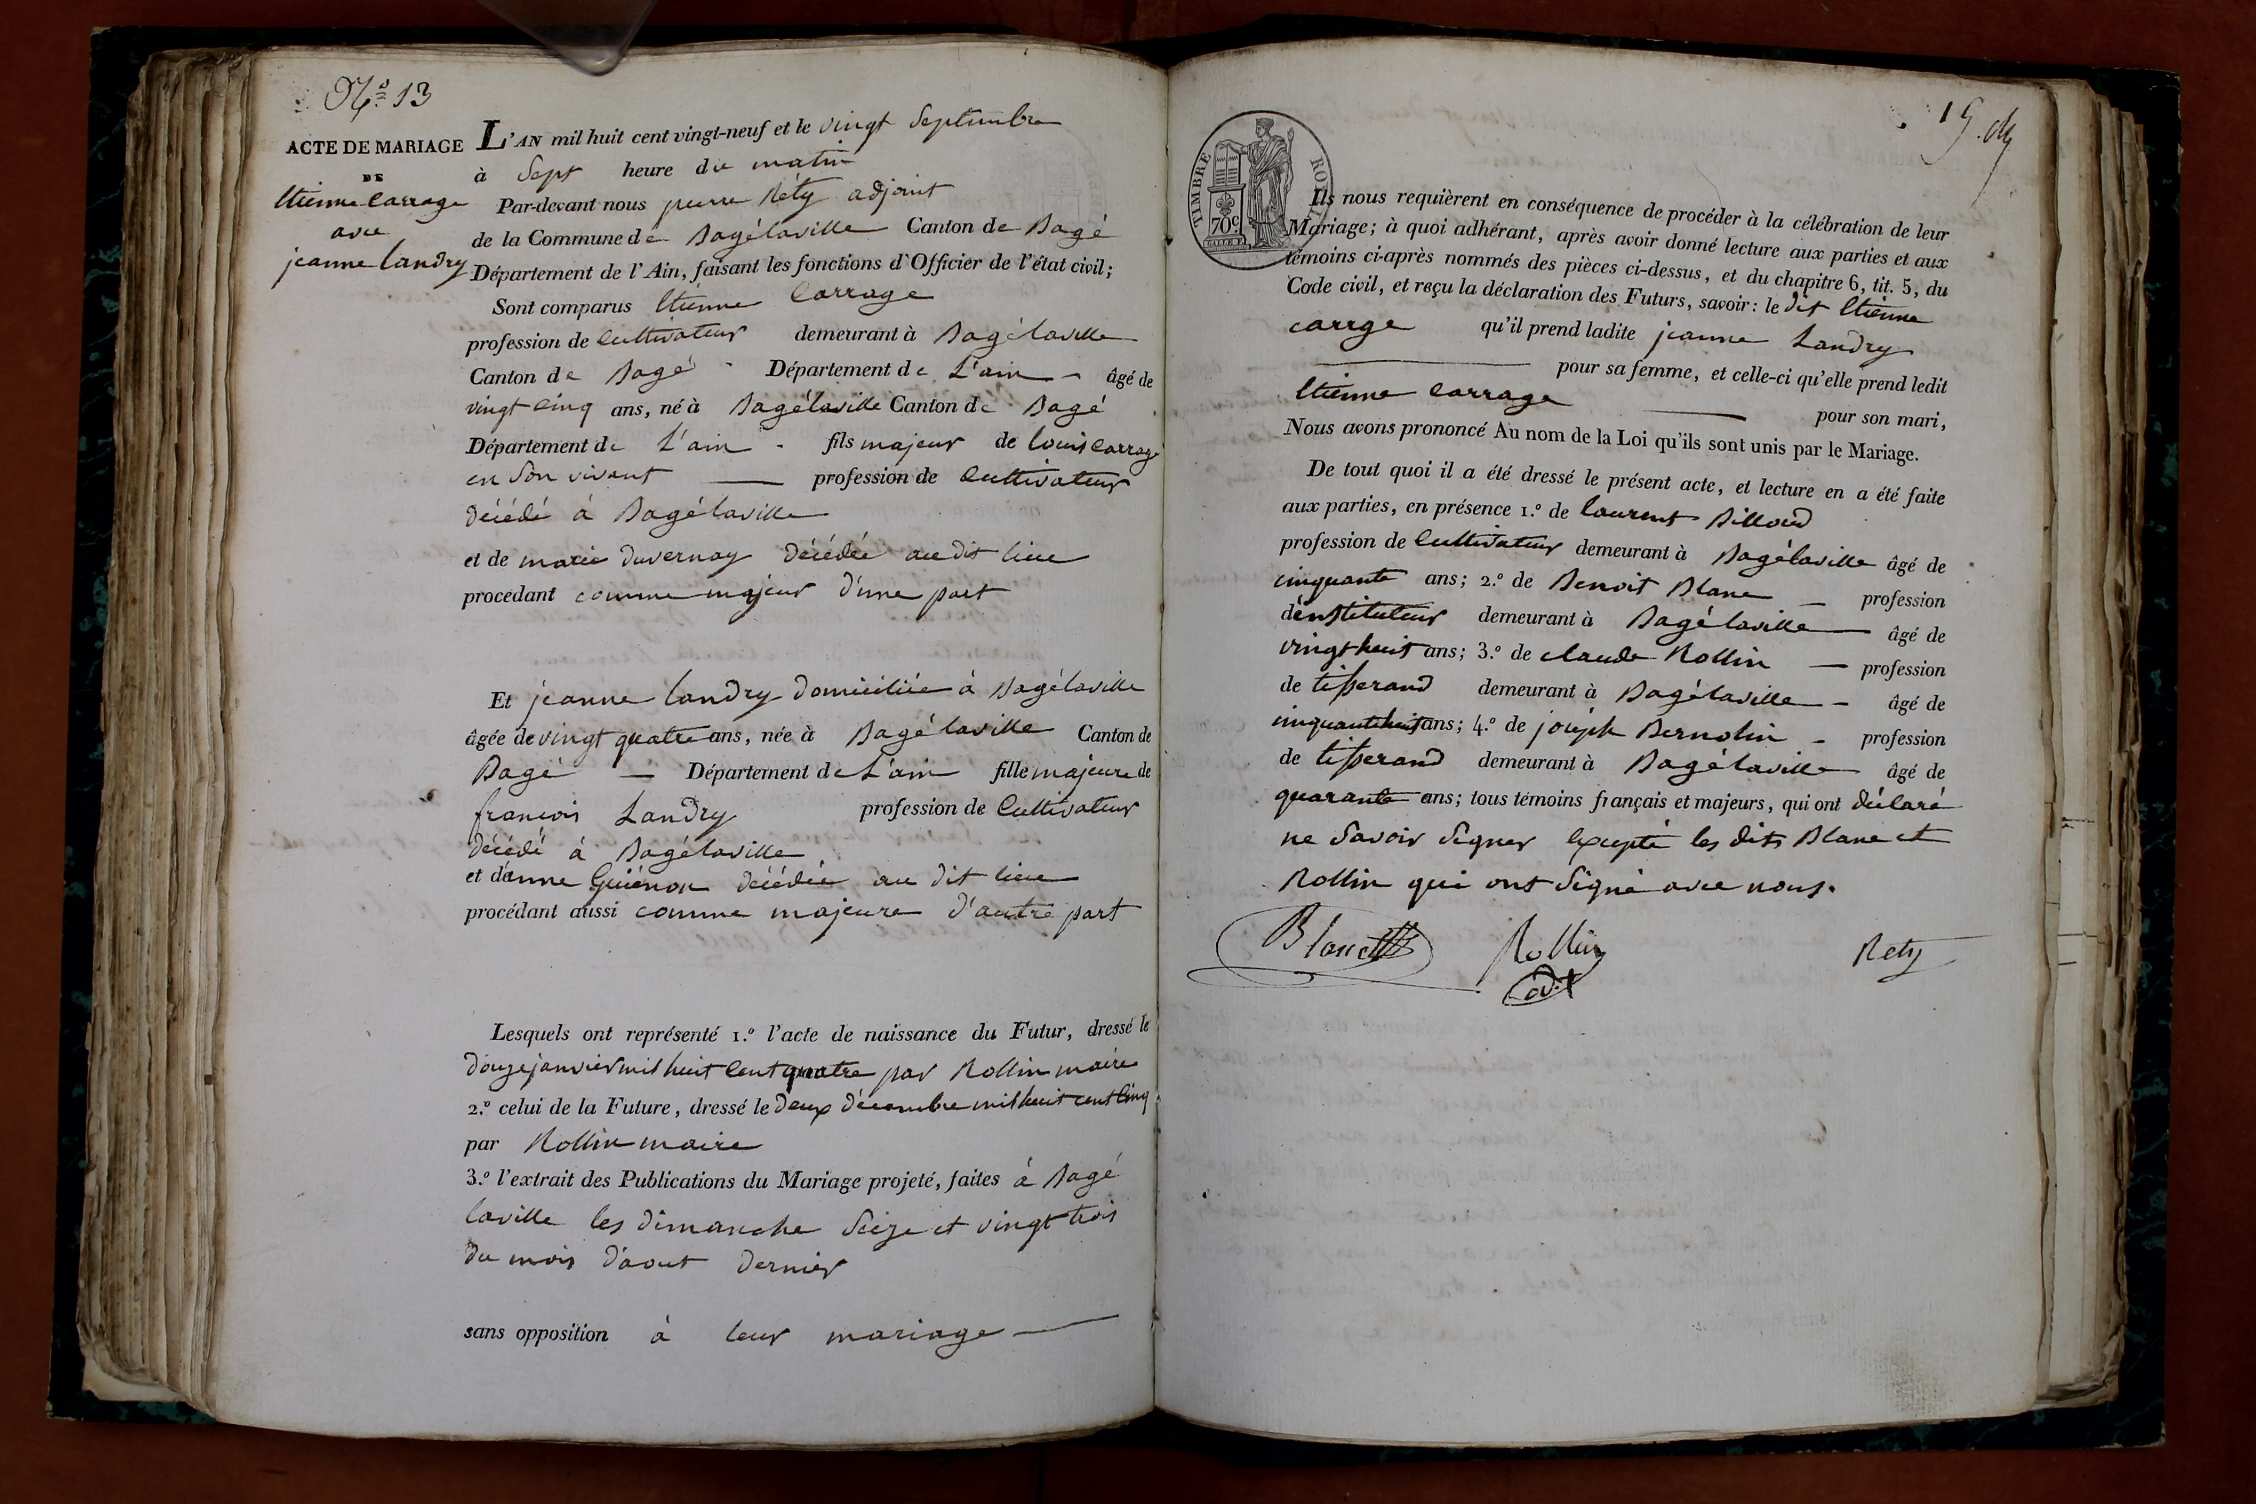 N.º 13
ACTE DE MARIAGE
DE
Etienne Carrage
avec
jeanne Landry
L'AN mil huit cent vingt-neuf et le vingt Septembre
à Sept heure du matin
Par-devant nous pierre Réty adjoint
de la Commune de Bagélaville Canton de Bagé
Département de l'Ain, faisant les fonctions d'Officier de l'état civil;
Sont comparus Etienne Carrage
profession de Cultivateur demeurant à Bagélaville
Canton de Bagé Département de L'ain âgé de
vingt cinq ans, né à Bagélaville Canton de Bagé
Département de L'ain fils majeur de Louis Carrage
en Son vivant profession de Cultivateur
décédé à Bagélaville
et de marie Duvernay décédée au dit lieu
procédant comme majeur d'une part
Et jeanne Landry domiciliée à Bagélaville
âgée de vingt quatre ans, née à Bagélaville Canton de
Bagé Département de L'ain fille majeure de
françois Landry profession de Cultivateur
décédé à Bagélaville
et d'anne Guiénon décédée au dit lieu
procédant aussi comme majeure d'autre part
Lesquels ont représenté 1.º l'acte de naissance du Futur, dressé le
douze janvier mil huit Cent quatre par Rollin maire
2.º celui de la Future, dressé le deux décembre mil huit cent Cinq
par Rollin maire
3.º l'extrait des Publications du Mariage projeté, faites à Bagé
laville les dimanche Seize et vingt trois
du mois d'aout dernier
sans opposition à leur mariage
15.
TIMBRE ROYAL
70 c
Ils nous requièrent en conséquence de procéder à la célébration de leur
Mariage; à quoi adhérant, après avoir donné lecture aux parties et aux
témoins ci-après nommés des pièces ci-dessus, et du chapitre 6, tit. 5, du
Code civil, et reçu la déclaration des Futurs, savoir: le dit Etienne
carrge qu'il prend ladite jeanne Landry
pour sa femme, et celle-ci qu'elle prend ledit
Etienne Carrage pour son mari,
Nous avons prononcé Au nom de la Loi qu'ils sont unis par le Mariage.
De tout quoi il a été dressé le présent acte, et lecture en a été faite
aux parties, en présence 1.º de Laurent Billoud
profession de Cultivateur demeurant à Bagélaville âgé de
cinquante ans; 2.º de Benoit Blanc profession
d'instituteur demeurant à Bagélaville âgé de
vingt huit ans; 3.º de claude Rollin profession
de tisserand demeurant à Bagélaville âgé de
cinquante huit ans; 4.º de joseph Bernolin profession
de tisserand demeurant à Bagélaville âgé de
quarante ans; tous témoins français et majeurs, qui ont déclaré
ne Savoir Signer Excepté les dits Blanc et
Rollin qui ont Signé avec nous.
Blanc Rollin Rety